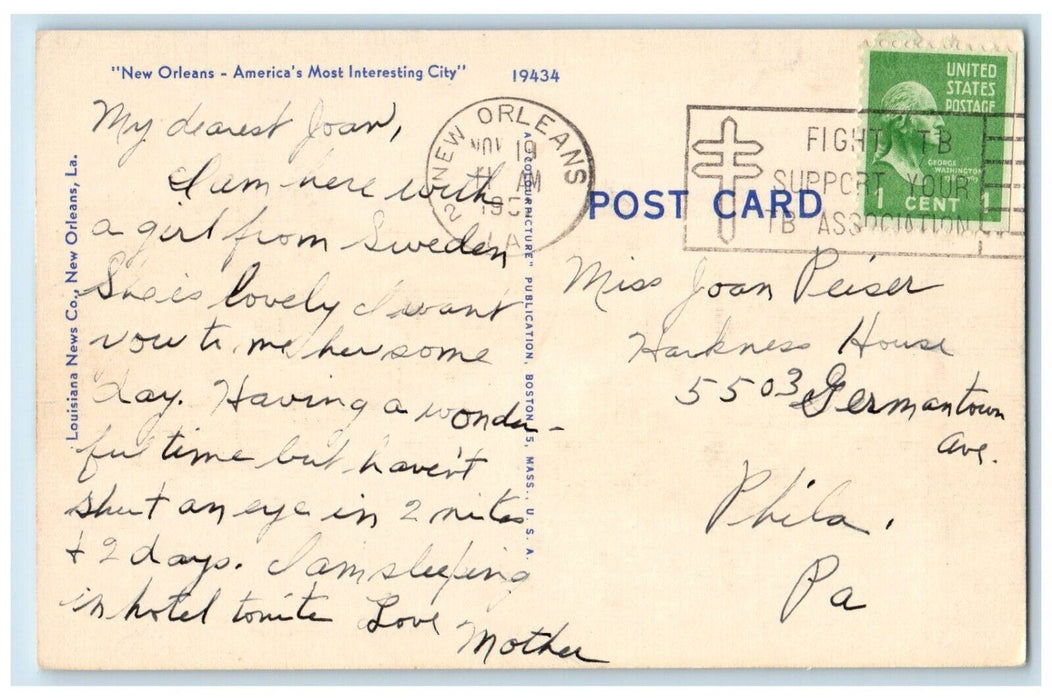 "New Orleans - America's Most Interesting City" 19434
Louisiana News Co., New Orleans, La.
A "COLOURPICTURE" PUBLICATION, BOSTON 15, MASS., U. S. A.
My dearest Joan,
I am here with
a girl from Sweden
She is lovely I want
you to me her some
day. Having a wonder-
ful time but haven't
shut an eye in 2 nites
+ 2 days. I am sleeping
in hotel tonite Love
Mother
NEW ORLEANS
NOV 19
11 AM
LA
2
FIGHT TB
SUPPORT YOUR
TB ASSOCIATION
UNITED
STATES
POSTAGE
GEORGE
WASHINGTON
1 CENT 1
POST CARD
Miss Joan Peiser
Harkness House
5503 Germantown
Ave.
Phila.
Pa